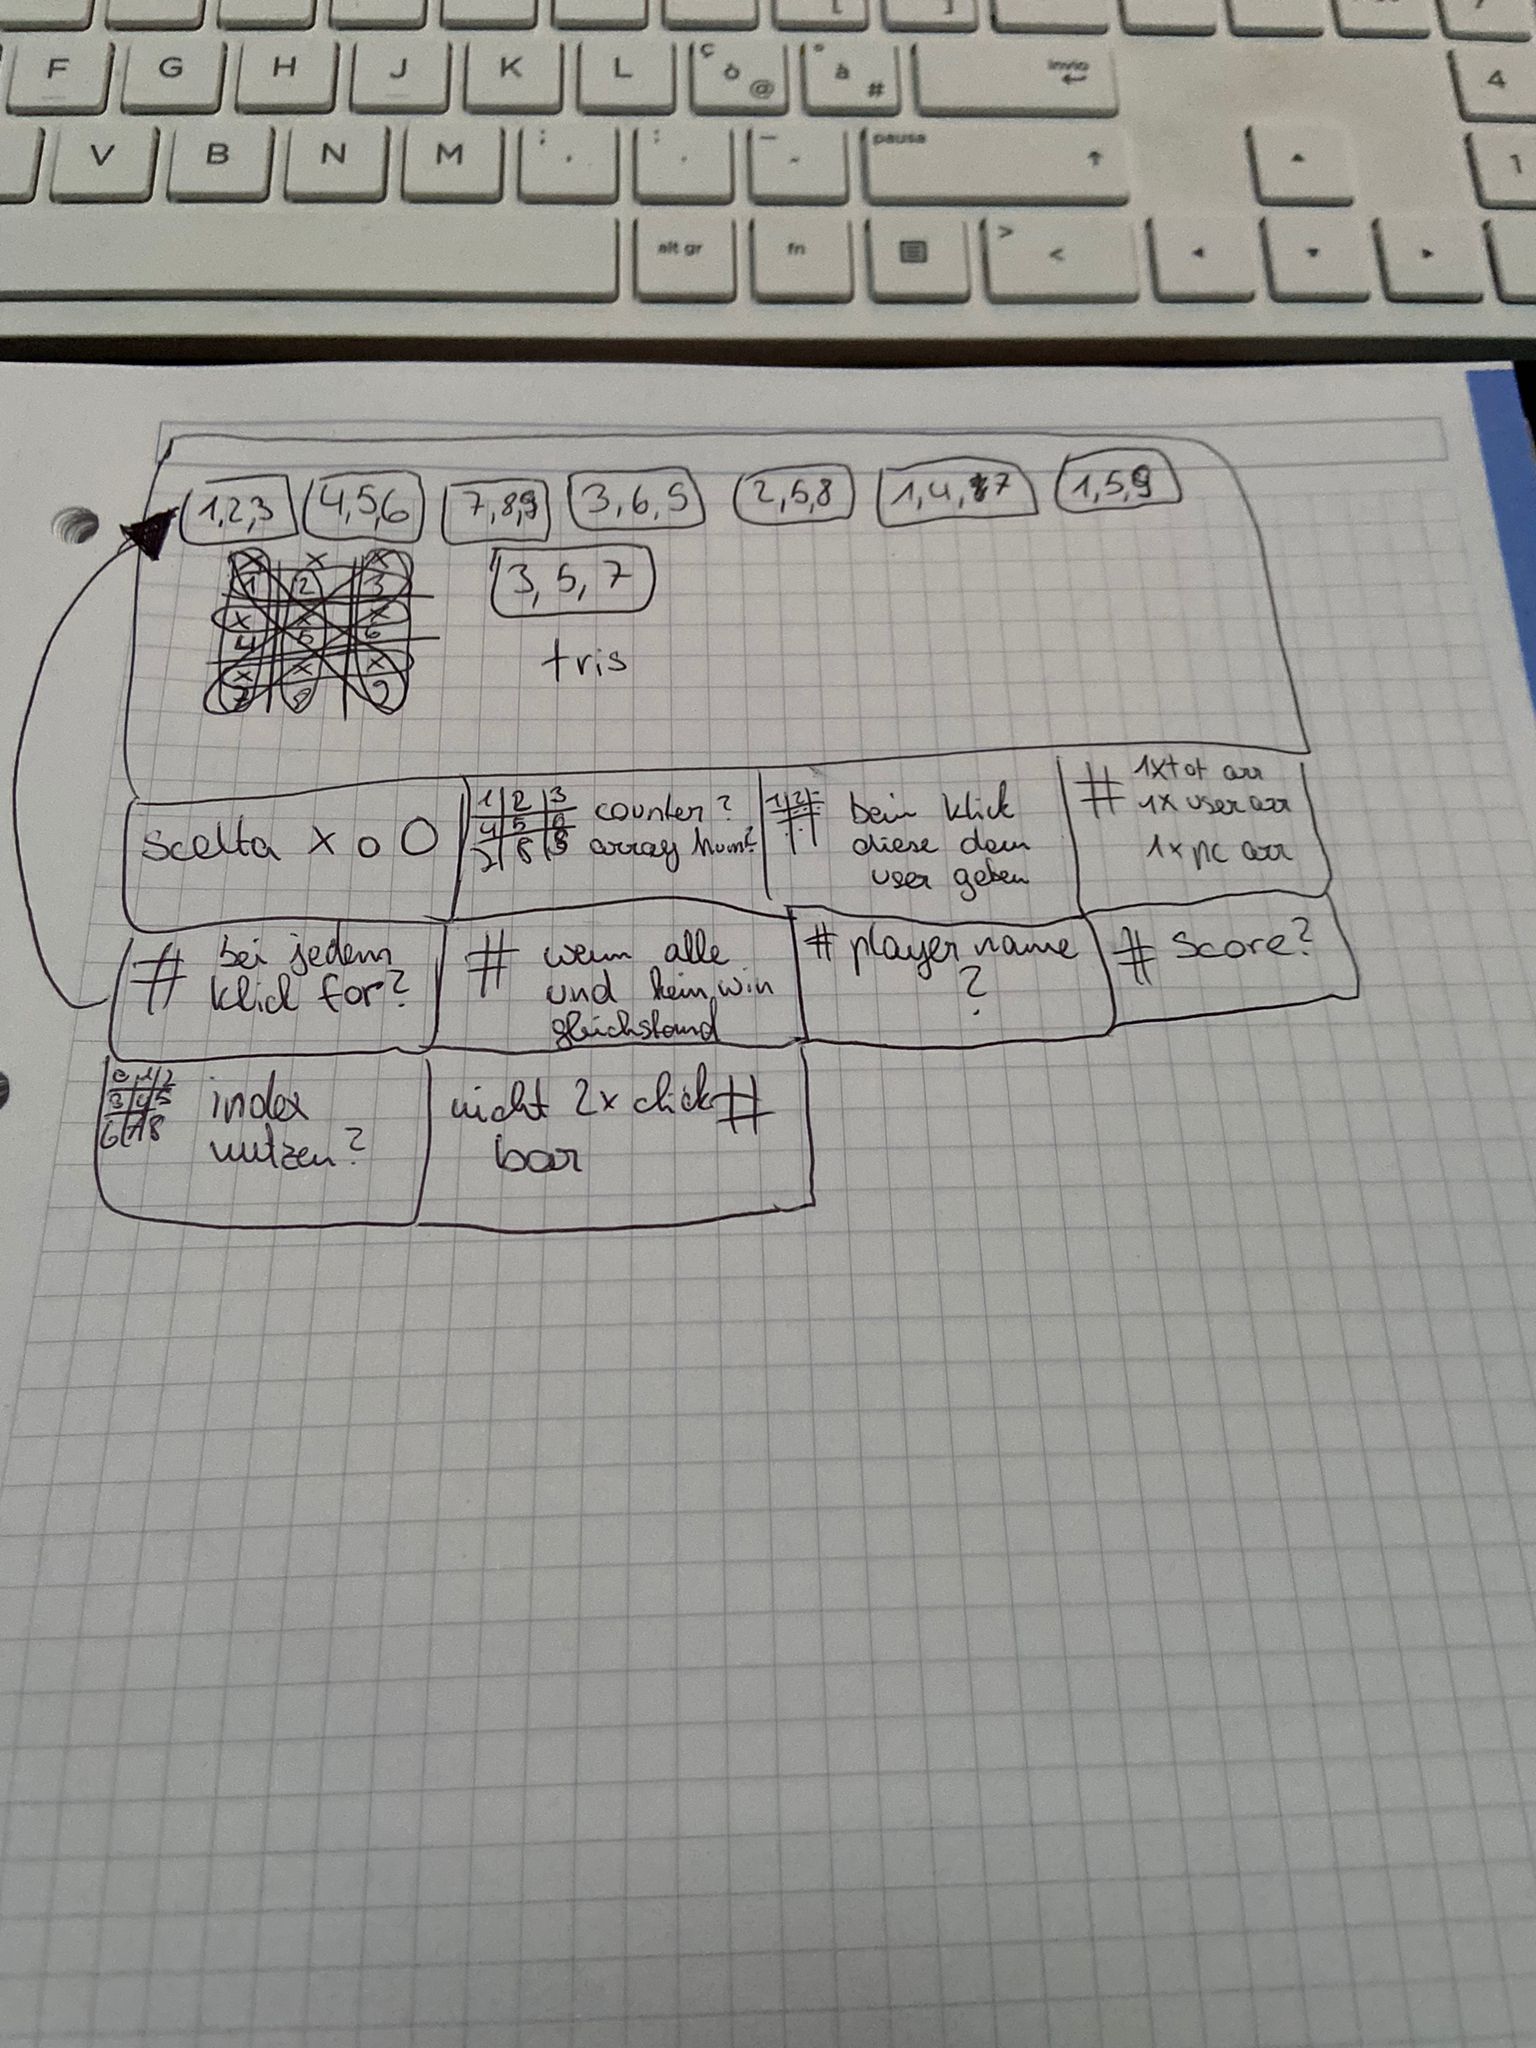 F G H J K L ç ò @ ° à # invio 4
V B N M ; , : . _ - pausa 1
alt gr fn > <
1,2,3 4,5,6 7,8,9 3,6,9 2,5,8 1,4,7 1,5,9
x x x
1 2 3
3, 5, 7
x x
4 5 6
tris
x x x
7 8 9
scelta x o O
1 2 3
4 5 6
7 8 9
counter?
array num?
1 2
beim klick
diese dem
user geben
# 1xtot arr
1x user arr
1x pc arr
# bei jedem
klick for?
# wenn alle
und kein win
gleichstand
# player name
?
# Score?
0 1 2
3 4 5
6 7 8
index
nutzen?
nicht 2x click #
bar